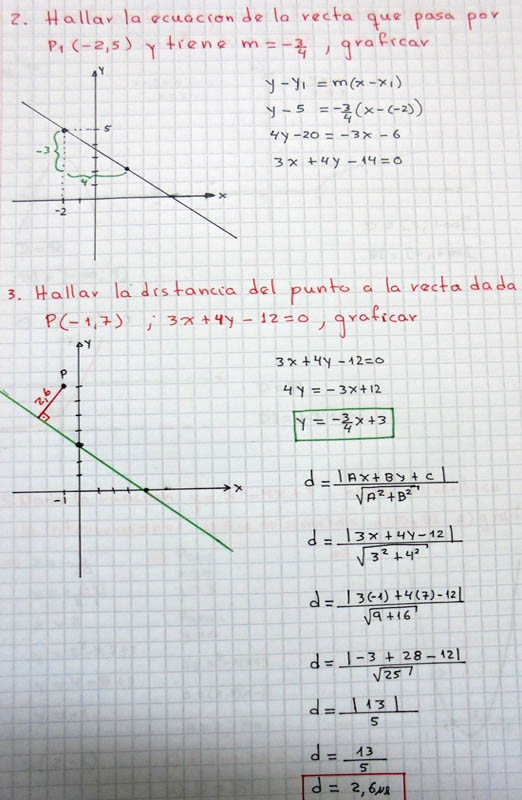 2. Hallar la ecuacion de la recta que pasa por
P₁(-2,5) y tiene m = -3/4, graficar
Y
5
-3
4
X
-2
y - y₁ = m(x - x₁)
y - 5 = -3/4(x - (-2))
4y - 20 = -3x - 6
3x + 4y - 14 = 0
3. Hallar la distancia del punto a la recta dada
P(-1,7) ; 3x + 4y - 12 = 0, graficar
Y
P
2,6
X
-1
3x + 4y - 12 = 0
4y = -3x + 12
y = -3/4x + 3
d = |Ax + By + C| / √A² + B²
d = |3x + 4y - 12| / √3² + 4²
d = |3(-1) + 4(7) - 12| / √9 + 16
d = |-3 + 28 - 12| / √25
d = |13| / 5
d = 13 / 5
d = 2,6